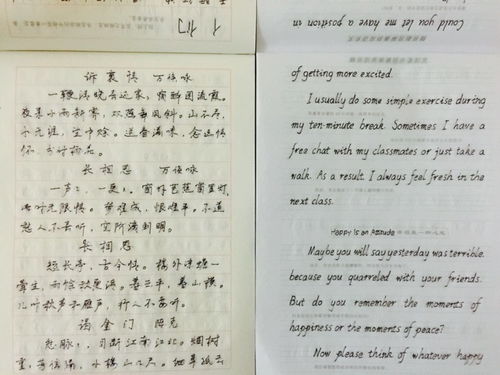 个们
诉衷情 万俟咏
一鞭清晓喜还家，宿醉困流霞。
夜来小雨新霁，双燕舞风斜。山不尽，
水无涯，望中赊。送春滋味，念远情
怀，分付杨花。
长相思 万俟咏
一声〻，一更〻。窗外芭蕉窗里灯，
此时无限情。梦难成，恨难平。不道
愁人不喜听，空阶滴到明。
长相思
短长亭，古今情。楼外凉蟾一
晕生，雨余秋更清。暮云平，暮山横。
几叶秋声和雁声，行人不要听。
谒金门 陈克
愁脉〻，目断江南江北。烟树
重〻芳信隔，小楼山几尺。细草孤云
Could you let me have a position in
of getting more excited.
I usually do some simple exercise during
my ten-minute break. Sometimes I have a
free chat with my classmates or just take a
walk. As a result I always feel fresh in the
next class.
Happy is an Attitude
Maybe you will say yesterday was terrible.
because you quarreled with your friends.
But do you remember the moments of
happiness or the moments of peace?
Now please think of whatever happy